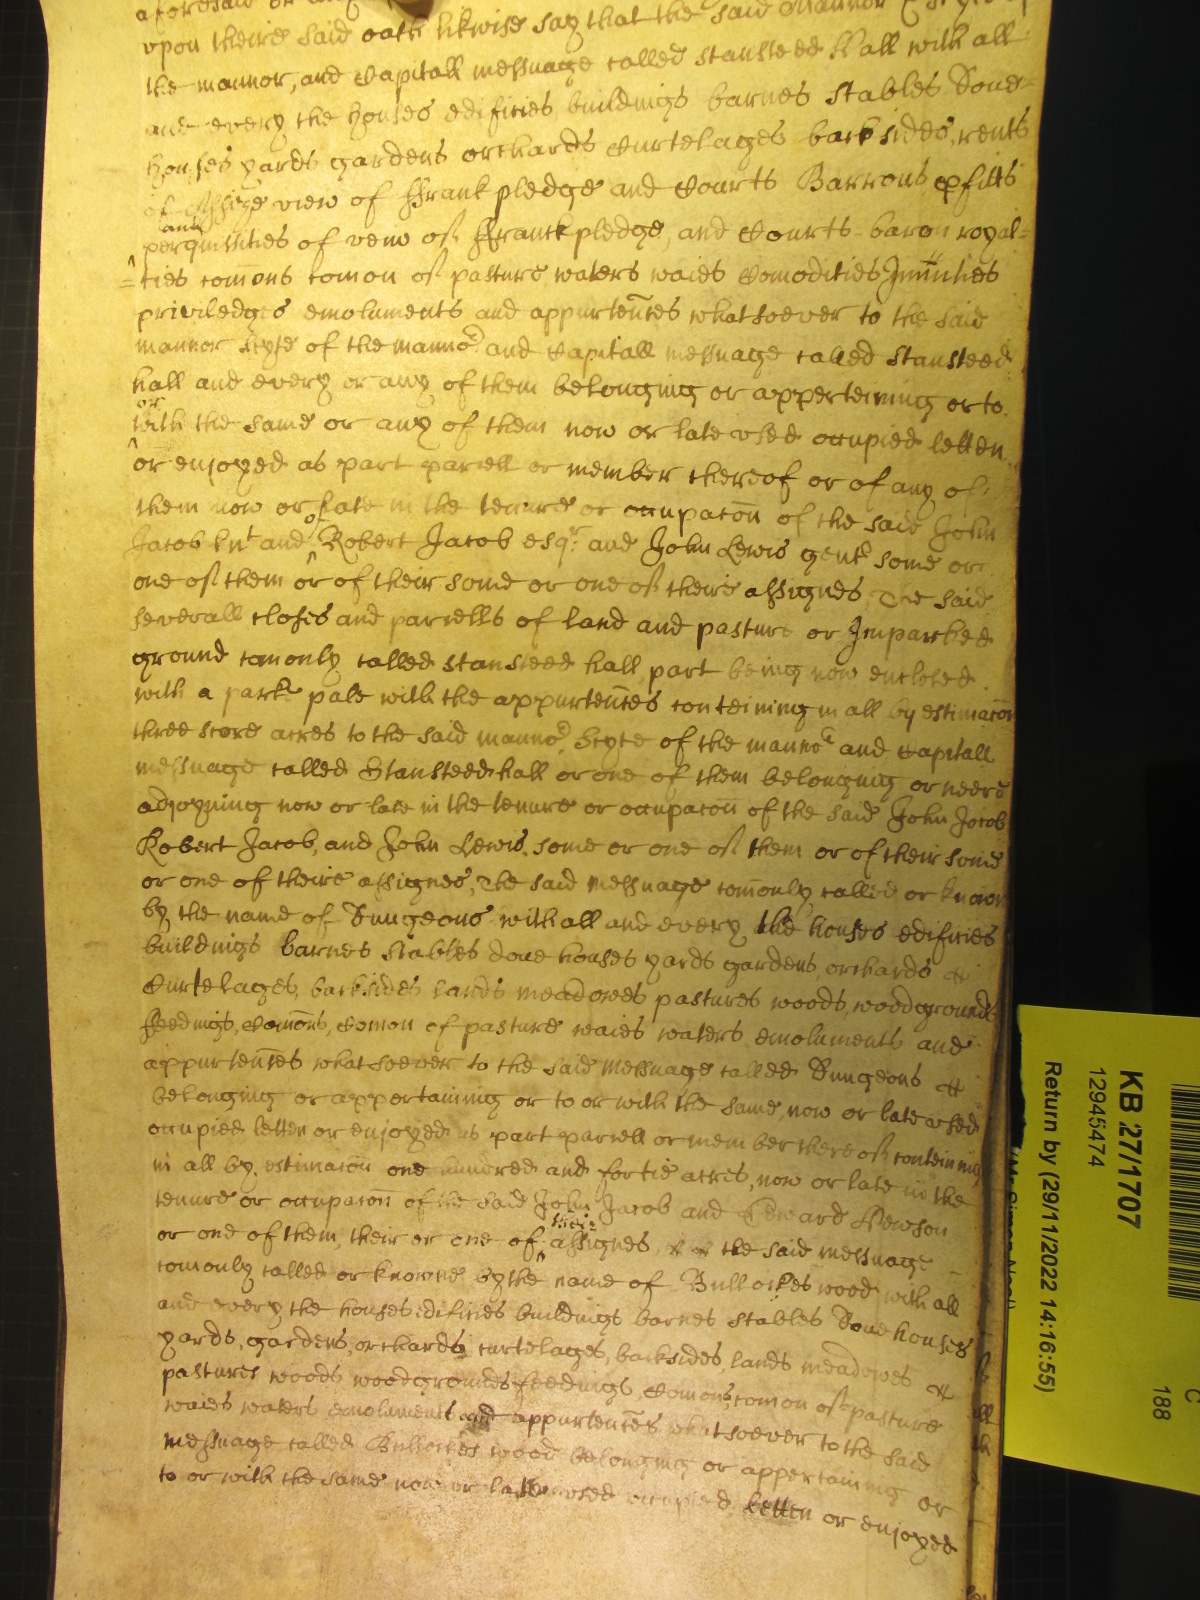 aforesaid or
upon theire said oath likwise say that the said Mannor & Scyte of
the mannor, and Capitall messuage called Stansteed Hall with all
and every the houses edifities buildings barnes stables Dove=
houses yards gardens orchards Curtelages backsides, rents
of Assize view of ffrankpledge and Courts Barrons, pfitts
and
perquisities of veiw of ffranckpledge, and Courts=baron royal=
=ties com̄ons comon of pasture waters waies Comodities Jmūnities
priviledges emolaments and appurten̄tes whatsoever to the said
mannor Scyte of the manno.r and Capitall messuage called Stansteed
hall and every or any of them belonging or apperteining or to
or
with the same or any of them now or late vsed occupied letten
or enjoyed as part parcell or member thereof or of any of
them now or late in the tenure or occupacōn of the said John
of
Jacob kn.t and Robert Jacob esq.r and John Lewis gent some or
one of them or of their some or one of theire assignes, The said
severall closes and parcells of land and pasture or Jmparked
ground comonly called Stansteed hall, part being now enclosed
with a parke pale with the appurten̄tes conteining in all by estimacōn
three score acres to the said manno.r Scyte of the manno.r and Capitall
messuage called Stansteedhall or one of them belonging or neere
adjoyning now or late in the tenure or occupacōn of the said John Jacob
Robert Jacob, and John Lewis, some or one of them or of their some
or one of theire assignes, The said messuage com̄only called or known
by the name of Dungeons with all and every the houses edifities
buildings barnes stables dove houses yards gardens, orchards &
Curtelages, backsides lands meadowes pastures woods, woodgrounds
ffeedings, Com̄ons, Comon of pasture waies waters emoluments and
appurten̄tes whatsoever to the said messuage called Dungeons &
belonging or appertaining or to or with the same, now or late vsed
occupied letten or enjoyed as part parcell or member thereof conteining
in all by estimacōn one hundred and fortie acres, now or late in the
tenure or occupacōn of the said John Jacob and Edward Hewson
their
or one of them, their or one of assignes, & & the said messuage
comonly called or knowne by the name of Bullockes wood with all
and every the houses edifities buildings barnes stables Dove houses
yards, gardens, orchards curtelages, backsides, lands meadowes &
pastures woods woodgrounds feedings, Comons, comon of pasture
waies waters emolaments and appurten̄tes whatsoever to the said
messuage called Bullockes wood belonging or appertaining or
to or with the same now or late vsed occupied letten or enjoyed
KB 27/1707
12945474
Return by (29/11/2022 14:16:55)
C
188